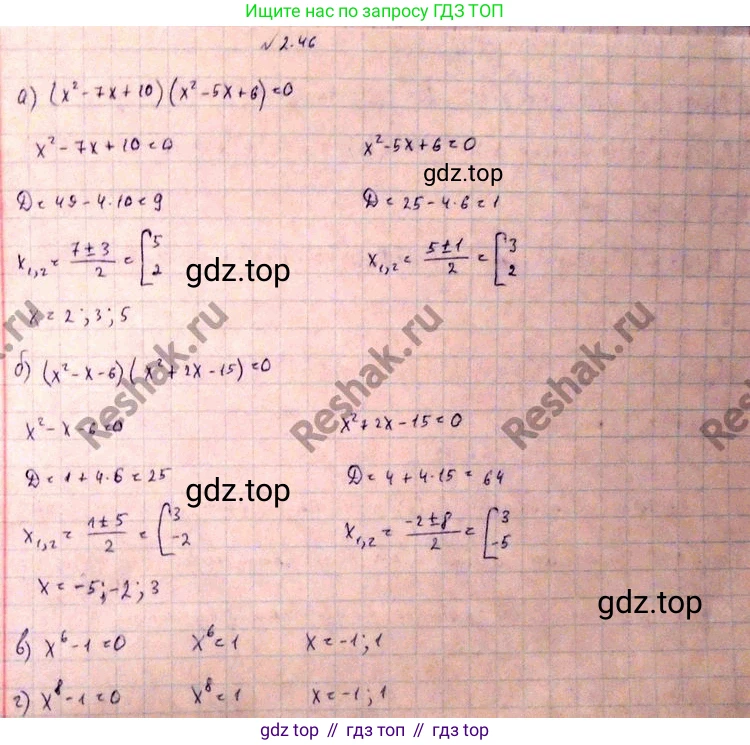 Ищите нас по запросу ГДЗ ТОП
№ 2.46
а) (x² - 7x + 10)(x² - 5x + 6) = 0
x² - 7x + 10 = 0 x² - 5x + 6 = 0
gdz.top
D = 49 - 4·10 = 9 D = 25 - 4·6 = 1
x₁,₂ = (7 ± 3)/2 = [5 2 x₁,₂ = (5 ± 1)/2 = [3 2
gdz.top
x = 2; 3; 5
Reshak.ru
Reshak.ru
Reshak.ru
б) (x² - x - 6)(x² + 2x - 15) = 0
x² - x - 6 = 0 x² + 2x - 15 = 0
D = 1 + 4·6 = 25 D = 4 + 4·15 = 64
gdz.top
x₁,₂ = (1 ± 5)/2 = [3 -2 x₁,₂ = (-2 ± 8)/2 = [3 -5
x = -5; -2; 3
gdz.top
в) x⁶ - 1 = 0 x⁶ = 1 x = -1; 1
г) x⁸ - 1 = 0 x⁸ = 1 x = -1; 1
гдз топ // гдз топ // gdz.top